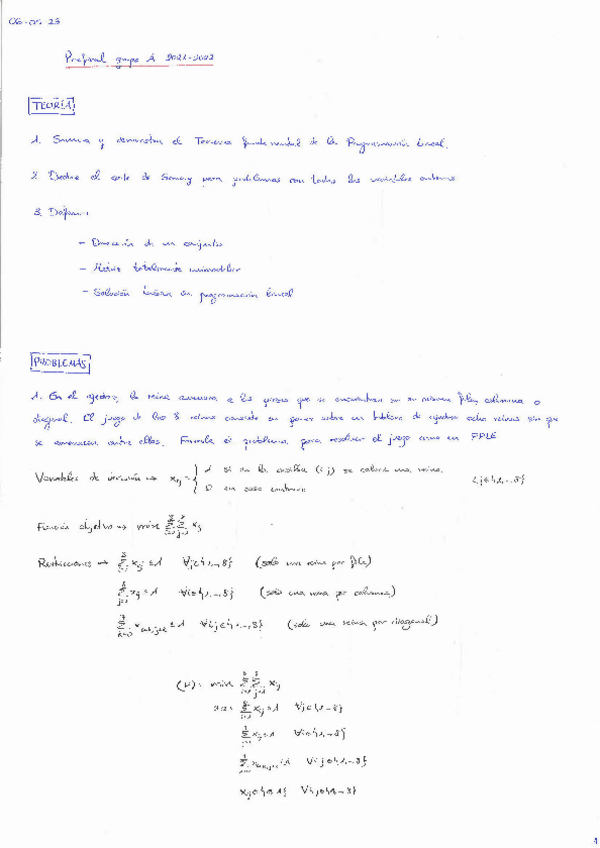 06-01-23
Prefinal grupo A 2021-2022
TEORÍA
1. Enuncia y demuestra el Teorema fundamental de la Programación Lineal.
2. Deduce el corte de Gomory para problemas con todas las variables enteras
3. Define:
- Envoltura de un conjunto
- Matriz totalmente unimodular
- Solución básica en programación lineal
PROBLEMAS
1. En el ajedrez, la reina amenaza a las piezas que se encuentran en su misma fila, columna o
diagonal. El juego de las 8 reinas consiste en poner sobre un tablero de ajedrez ocho reinas sin que
se amenacen entre ellas. Formula el problema para resolver el juego como un PPLE
Variables de decisión → xij = { 1 si en la casilla (i,j) se coloca una reina
0 en caso contrario
i,j∈{1,...,8}
Función objetivo → máx Σ Σ xij
Restricciones → Σ xij ≤ 1 ∀j∈{1,...,8} (solo una reina por fila)
Σ xij ≤ 1 ∀i∈{1,...,8} (solo una reina por columna)
≤ 1 ∀i,j∈{1,...,8} (solo una reina por diagonal)
máx Σ Σ xij
Σ xij ≤ 1 ∀j∈{1,...,8}
Σ xij ≤ 1 ∀i∈{1,...,8}
≤ 1 ∀i,j∈{1,...,8}
xij∈{0,1} ∀i,j∈{1,...,8}
1